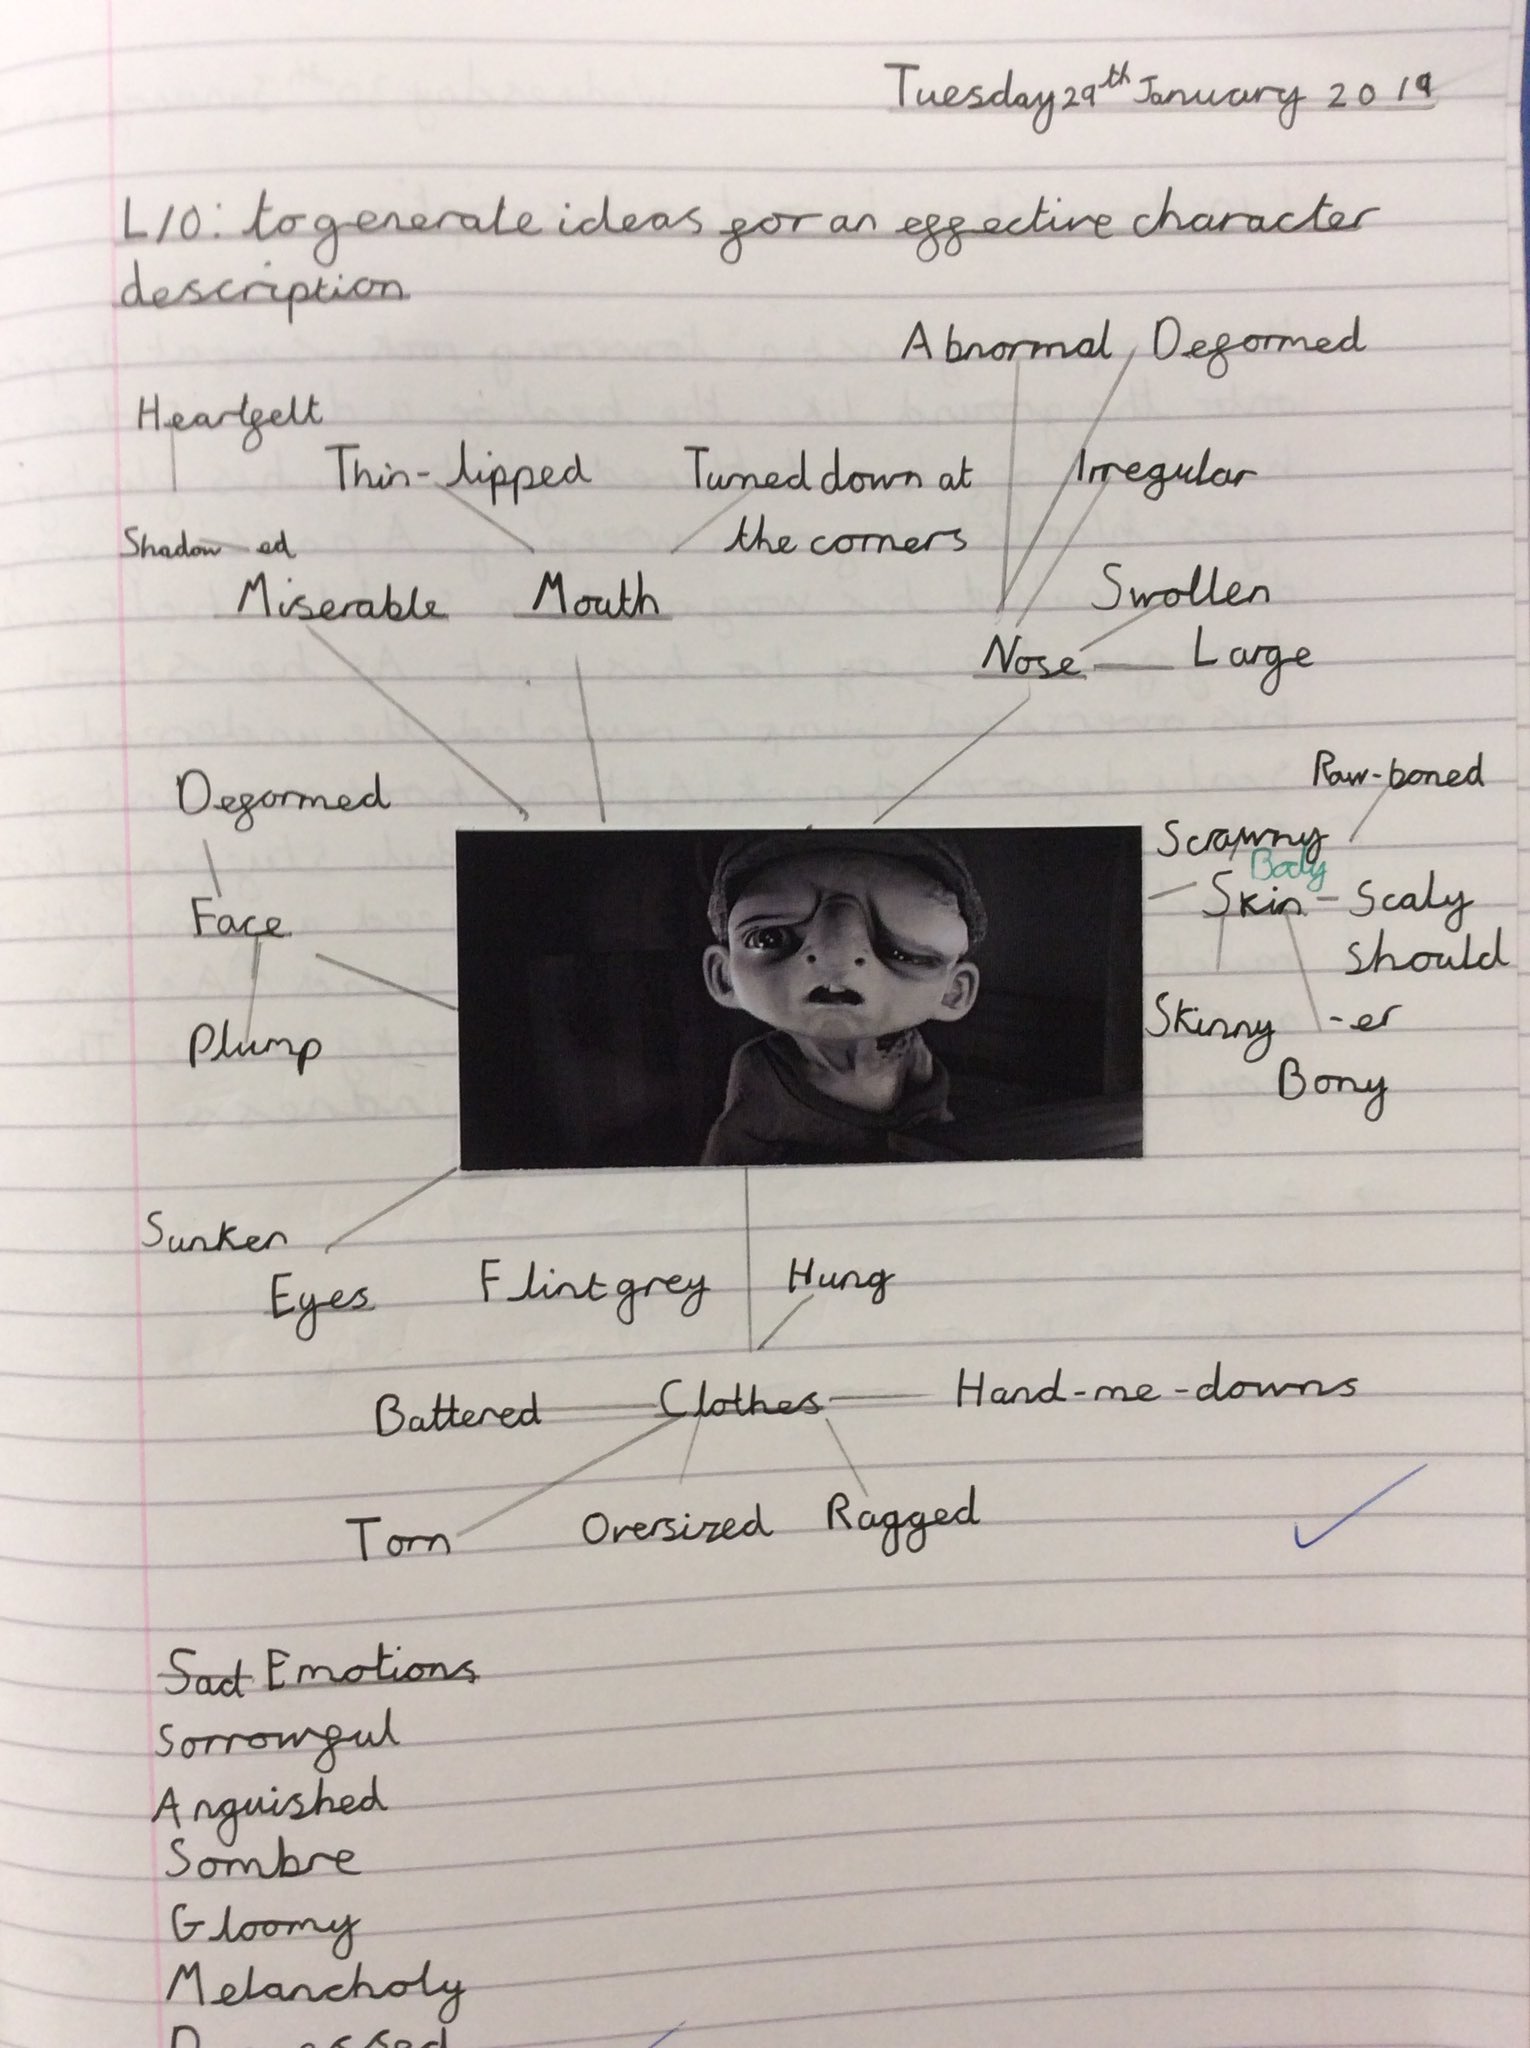 Tuesday 29th January 2019
L/O: to generate ideas for an effective character
description
Abnormal Deformed
Heartfelt
Thin-lipped Turned down at Irregular
the corners
Shadow-ed
Miserable Mouth Swollen
Nose Large
Raw-boned
Deformed
Scrawny
Body
Face Skin - Scaly
should
-er
Plump Skinny
Bony
Sunken
Eyes Flint grey Hung
Battered Clothes Hand-me-downs
Torn Oversized Ragged
Sad Emotions
Sorrowful
Anguished
Sombre
Gloomy
Melancholy